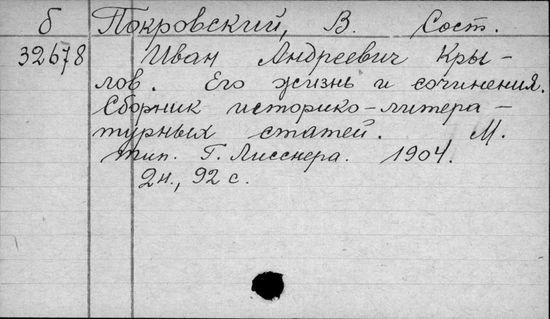 б Покровский, В. Сост.
32678 Иван Андреевич Кры-
лов. Его жизнь и сочинения.
Сборник историко-литера-
турных статей. М.
тип. Г. Лисснера. 1904.
2н., 92 с.